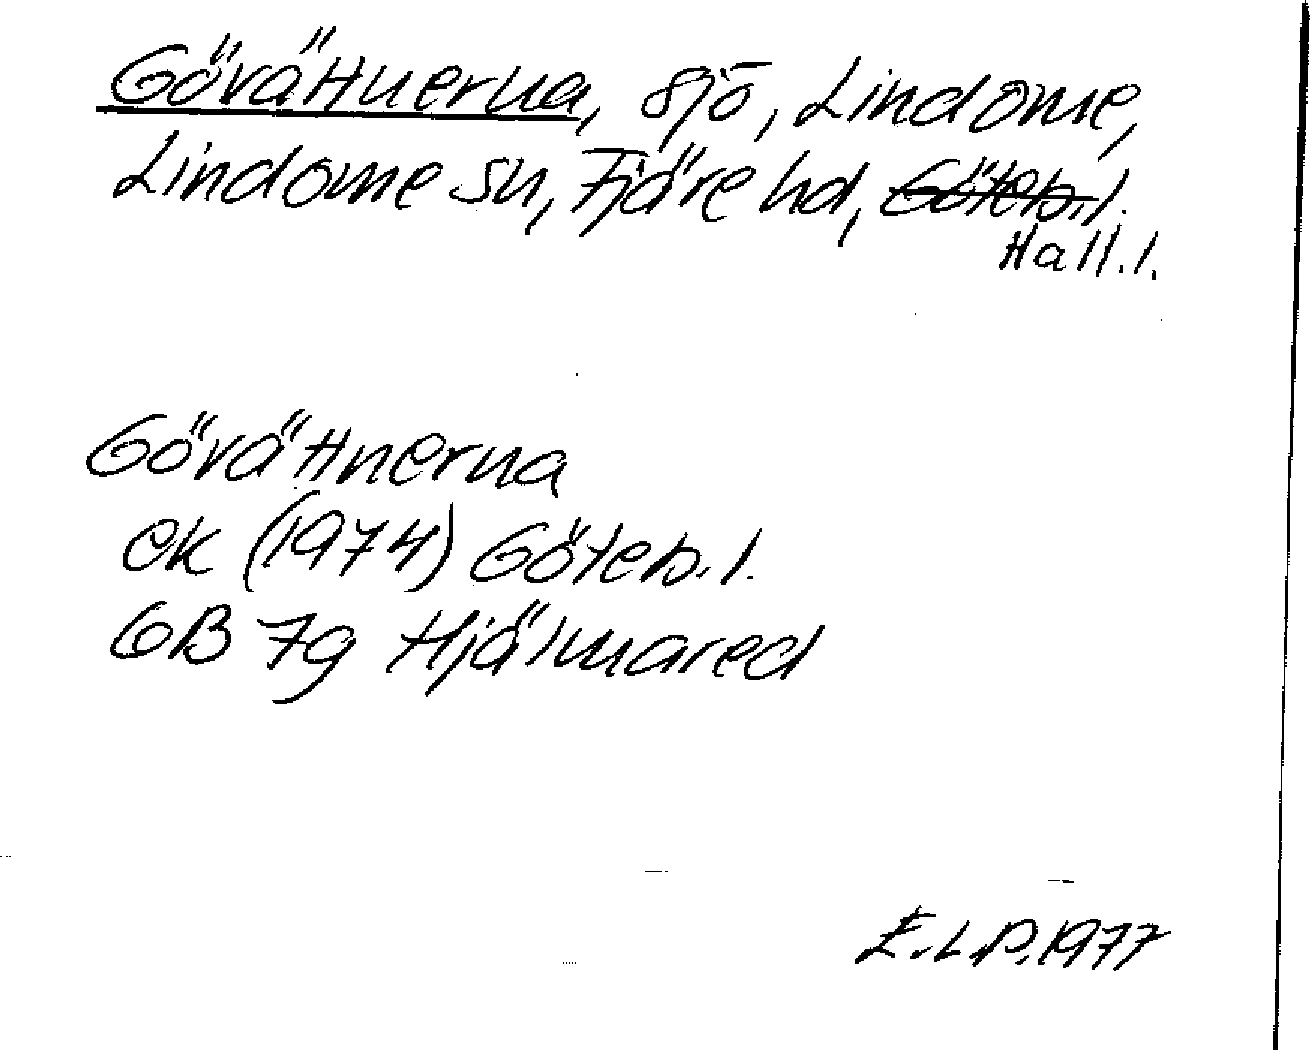 Gövättnerna, sjö, Lindome,
Lindome sn, Fjäre hd, Göteb. l.
Hall. l.
Gövättnerna
ek (1974) Göteb. l.
6B 7g Hjälmared
E.L.P. 1977